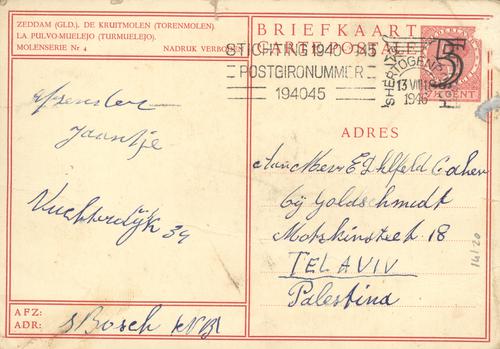 ZEDDAM (GLD.). DE KRUITMOLEN (TORENMOLEN).
LA PULVO-MUELEJO (TURMUELEJO).
MOLENSERIE Nr 4 NADRUK VERBODEN
BRIEFKAART
CARTE POSTALE
STICHTING 1940-1945
POSTGIRONUMMER
194045
'S HERTOGENB
13 VIII
1946
5
CENT
Afzender
Jaantje
Vuchterdijk 39
AFZ:
ADR:
s Bosch
ADRES
Aan Mevr E Ihlfeld Cohen
bij Goldschmidt
Motzkinstreet 18
TEL AVIV
Palestina
16/20